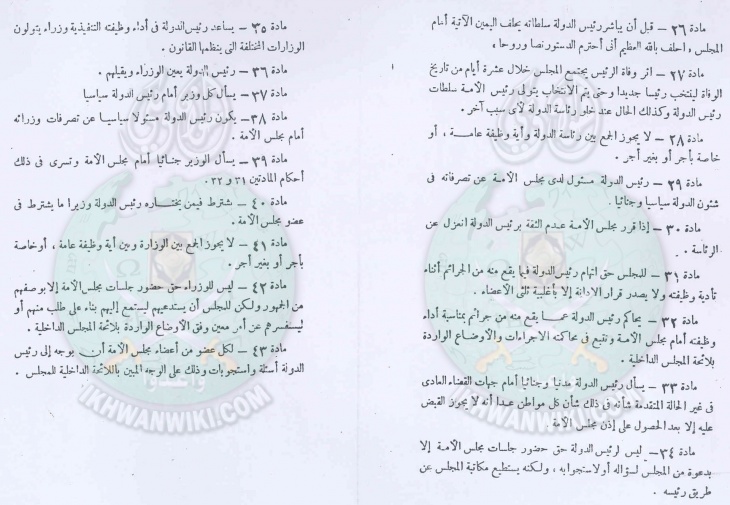 مادة ٢٦ — قبل أن يباشر رئيس الدولة سلطاته يحلف اليمين الآتية أمام
المجلس « احلف بالله العظيم أنى أحترم الدستور نصا وروحا »
مادة ٢٧ — اثر وفاة الرئيس يجتمع المجلس خلال عشرة أيام من تاريخ
الوفاة لينتخب رئيسا جديدا وحتى يتم الانتخاب يتولى رئيس الأمة سلطات
رئيس الدولة وكذلك الحال عند خلو رئاسة الدولة لأى سبب آخر .
مادة ٢٨ — لا يجوز الجمع بين رئاسة الدولة وأية وظيفة عامة ، أو
خاصة بأجر أو بغير أجر .
مادة ٢٩ — رئيس الدولة مسئول لدى مجلس الأمة عن تصرفاته فى
شئون الدولة سياسيا وجنائيا .
مادة ٣٠ — إذا قرر مجلس الأمة عدم الثقة برئيس الدولة انعزل عن
الرئاسة .
مادة ٣١ — للمجلس حق اتهام رئيس الدولة فيما يقع منه من الجرائم أثناء
تأدية وظيفته ولا يصدر قرار الادانة إلا بأغلبية ثلثى الأعضاء .
مادة ٣٢ — يحاكم رئيس الدولة عما يقع منه من جرائم بمناسبة أداء
وظيفته أمام مجلس الأمة وتتبع فى محاكمته الاجراءات والأوضاع الواردة
بلائحة المجلس الداخلية .
مادة ٣٣ — يسأل رئيس الدولة مدنيا وجنائيا أمام جهات القضاء العادى
فى غير الحالة المتقدمة شأنه فى ذلك شأن كل مواطن عدا أنه لا يجوز القبض
عليه إلا بعد الحصول على إذن مجلس الأمة
مادة ٣٤ — ليس لرئيس الدولة حق حضور جلسات مجلس الأمة إلا
بدعوة من المجلس لسؤاله أو لاستجوابه ، ولكنه يستطيع مكاتبة المجلس عن
طريق رئيسه .
مادة ٣٥ — يساعد رئيس الدولة فى أداء وظيفته التنفيذية وزراء يتولون
الوزارات المختلفة التى ينظمها القانون .
مادة ٣٦ — رئيس الدولة يعين الوزراء ويقيلهم .
مادة ٣٧ — يسأل كل وزير أمام رئيس الدولة سياسيا
مادة ٣٨ — يكون رئيس الدولة مسئولا سياسيا عن تصرفات وزرائه
أمام مجلس الأمة .
مادة ٣٩ — يسأل الوزير جنائيا أمام مجلس الأمة وتسرى فى ذلك
أحكام المادتين ٣١ و ٣٢ .
مادة ٤٠ — يشترط فيمن يختاره رئيس الدولة وزيرا ما يشترط فى
عضو مجلس الأمة .
مادة ٤١ — لا يجوز الجمع بين الوزارة وبين أية وظيفة عامة ، أو خاصة
بأجر أو بغير أجر .
مادة ٤٢ — ليس للوزراء حق حضور جلسات مجلس الأمة إلا بوصفهم
من الجمهور ولكن للمجلس أن يستدعيهم ليستمع إليهم بناء على طلب منهم أو
ليستفسرهم عن أمر معين وفق الأوضاع الواردة بلائحة المجلس الداخلية .
مادة ٤٣ — لكل عضو من أعضاء مجلس الأمة أن يوجه إلى رئيس
الدولة أسئلة واستجوابات وذلك على الوجه المبين باللائحة الداخلية للمجلس .
IKHWANWIKI.COM
IKHWANWIKI.COM